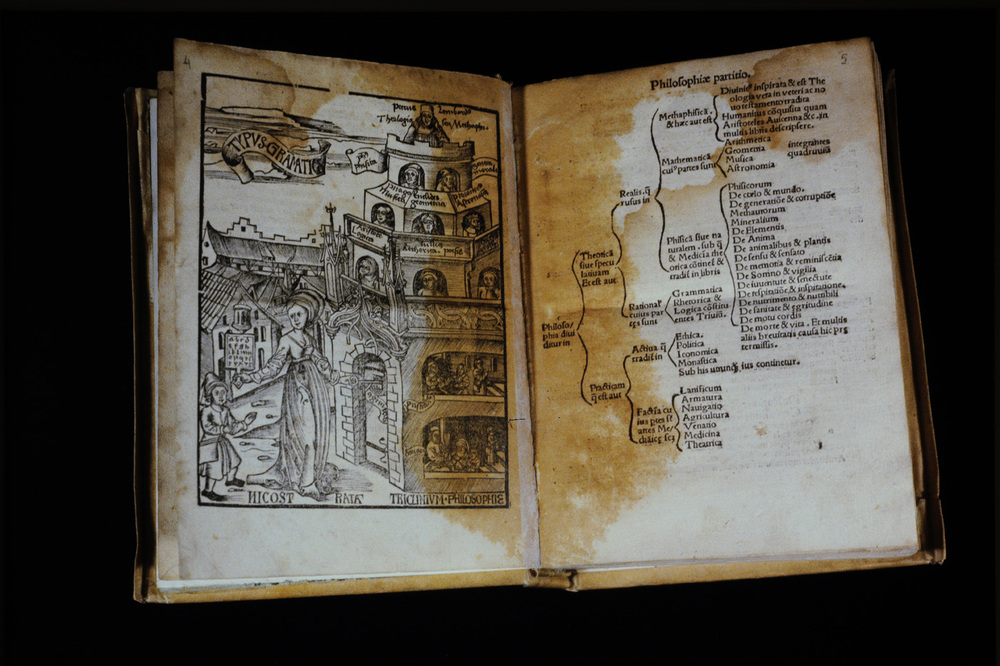 4
TYPVS·GRAMATICE
Petrus Lombardus
Theologia seu Methaphi.
NICOST RATA TRICLINIVM·PHILOSOPHIE
5
Philosophiæ partitio.
Philoso/
phia diui
ditur in
Theoricã
siue specu
latiuam
Et est aut
Realis. q̃
rursus in
Methaphisicã.
& hæc aut est
Diuinit⁹ inspirata & est The
ologia vera in veteri ac no
uo testamento tradita
Humanitus cõquisita quam
Aristoteles Auicenna &c. in
multis libris descripsere.
Mathematicã
cui⁹ partes sunt
Arithmetica
Geometria
Musica
Astronomia
integrantes
quadruuiũ
Phisicã siue na
turalem. sub q̃
& Medicĩa the
orica cõtinet̃ &
tradit̃ in libris
Phisicorum
De cœlo & mundo.
De generatiõe & corruptiõe
Methaurorum
Mineralium
De Elementis
De Anima
De animalibus & plantis
De sensu & sensato
De memoria & reminiscẽtia
De Somno & vigilia
De iuuentute & senectute
De respiratiõe & inspiratione.
De nutrimento & nutribili
De sanitate & egritudine
De motu cordis
De morte & vita. Et multis
aliis breuitatis causa hic prę
termissis.
Rational'
cuius par
tes sunt
Grammatica
Rhetorica &
Logica cõstitu
entes Triuiũ.
Practicam
q̃ est aut
Actiua q̃
tradit̃ in
Ethica.
Politica
Iconomica
Monastica
Sub his utrunq̃ ius continetur.
Factĩa cu
ius ptes sẽ
artes Me/
chãicę seq̃
Lanificum
Armatura
Nauigatio
Agricultura
Venatio
Medicina
Theatrica